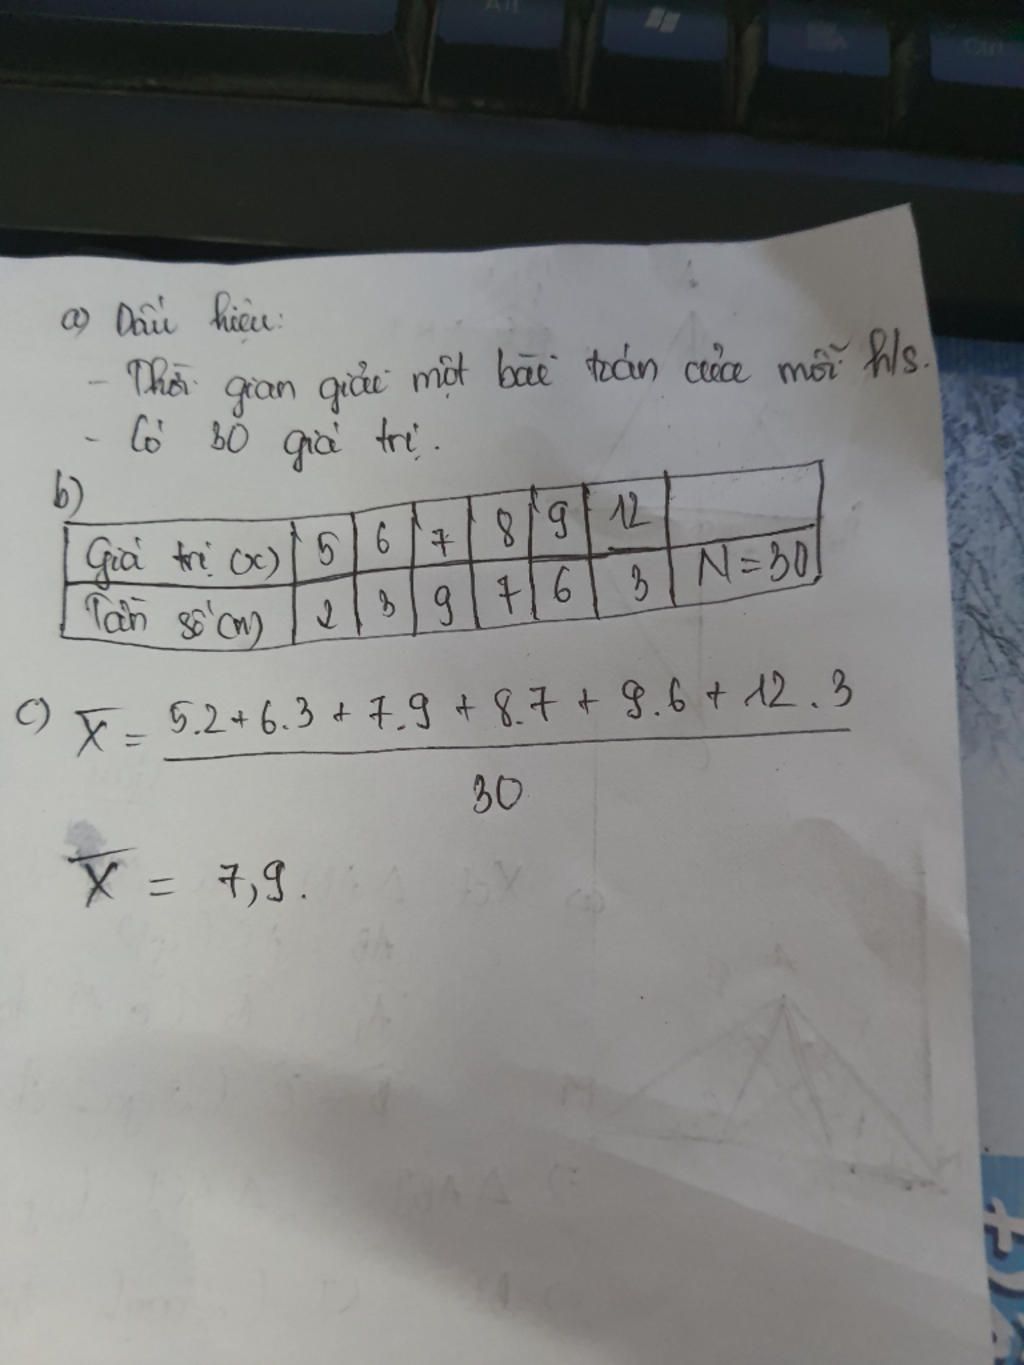 a) Dấu hiệu:
- Thời gian giải một bài toán của mỗi h/s.
- Có 30 giá trị.
b)
Giá trị (x) 5 6 7 8 9 12
Tần số (n) 2 3 9 7 6 3 N = 30
c) X̄ = 5.2 + 6.3 + 7.9 + 8.7 + 9.6 + 12.3
30
X̄ = 7,9.